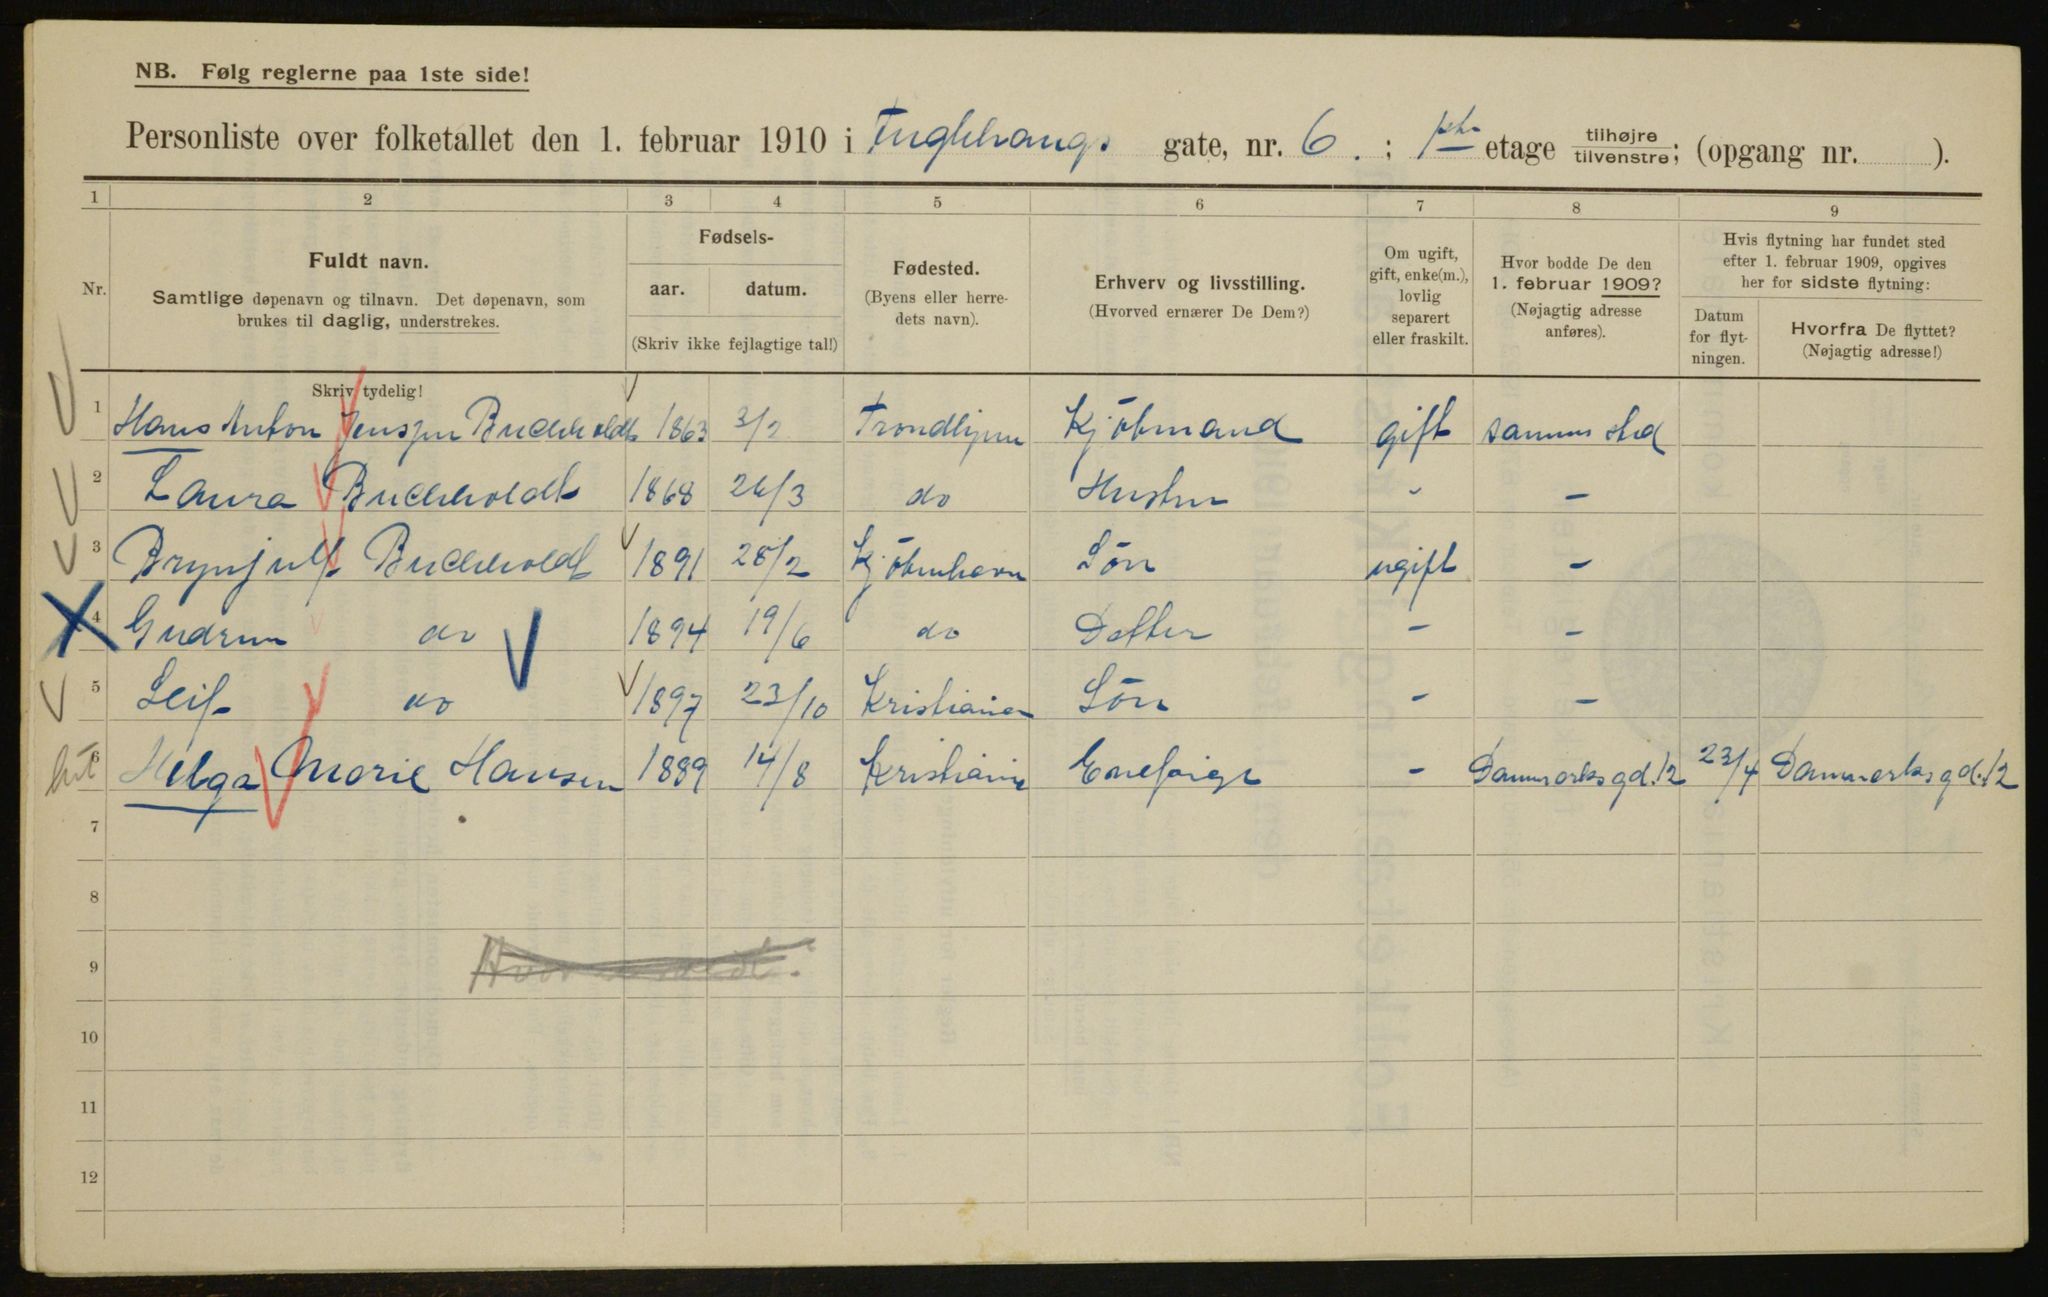 NB. Følg reglerne paa 1ste side!
Personliste over folketallet den 1. februar 1910 i Fuglehaugs gate, nr. 6. ; 1ste etage tilhøjre tilvenstre; (opgang nr. ).
1 2 3 4 5 6 7 8 9
Nr.
Fuldt navn.
Samtlige døpenavn og tilnavn. Det døpenavn, som
brukes til daglig, understrekes.
Skriv tydelig!
Fødsels-
aar. datum.
(Skriv ikke fejlagtige tal!)
Fødested.
(Byens eller herre-
dets navn).
Erhverv og livsstilling.
(Hvorved ernærer De Dem?)
Om ugift,
gift, enke(m.),
lovlig
separert
eller fraskilt.
Hvor bodde De den
1. februar 1909?
(Nøjagtig adresse
anføres).
Hvis flytning har fundet sted
efter 1. februar 1909, opgives
her for sidste flytning:
Datum
for flyt-
ningen.
Hvorfra De flyttet?
(Nøjagtig adresse!)
1 Hans Anton Jensen Buckholdt 1863 3/2 Trondhjem Kjöbmand gift samme sted
2 Laura Buckholdt 1868 26/3 do Hustru " -
3 Brynjulf Buckholdt 1891 28/2 Kjöbenhavn Sön ugift -
4 Gudrun do 1894 19/6 do Datter - -
5 Leif do 1897 23/10 Kristiania Sön - -
6 Helga Marie Hansen 1889 14/8 Kristiania Enepige - Danmarksgd. 12 23/4 Danmarksgd. 12
7
8
9
10
11
12